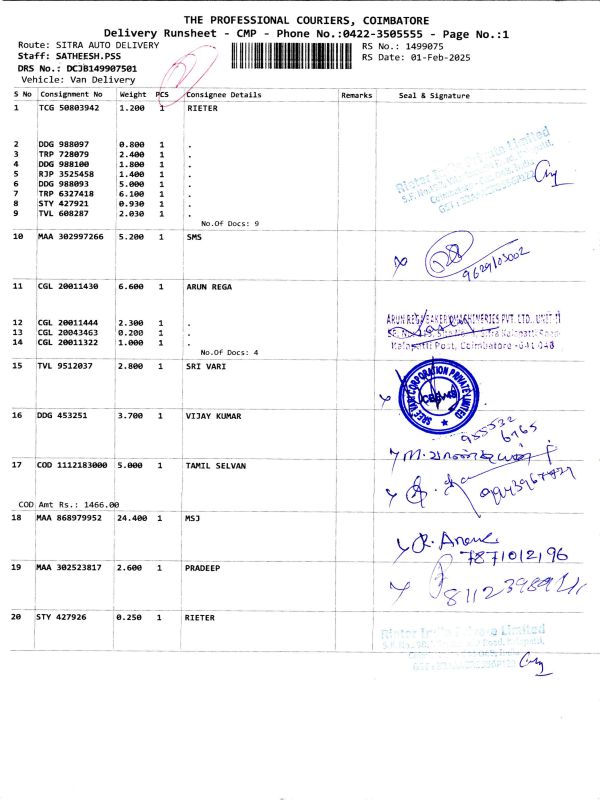 THE PROFESSIONAL COURIERS, COIMBATORE
Delivery Runsheet - CMP - Phone No.:0422-3505555 - Page No.:1
Route: SITRA AUTO DELIVERY
RS No.: 1499075
Staff: SATHEESH.PSS
RS Date: 01-Feb-2025
DRS No.: DCJB149907501
Vehicle: Van Delivery
S No Consignment No Weight PCS Consignee Details Remarks Seal & Signature
1 TCG 50803942 1.200 1 RIETER
2 DDG 988097 0.800 1 .
3 TRP 728079 2.400 1 .
4 DDG 988100 1.800 1 .
5 RJP 3525458 1.400 1 .
6 DDG 988093 5.000 1 .
7 TRP 6327418 6.100 1 .
8 STY 427921 0.930 1 .
9 TVL 608287 2.030 1 .
No.Of Docs: 9
Rieter India Private Limited
10 MAA 302997266 5.200 1 SMS
9629103002
11 CGL 20011430 6.600 1 ARUN REGA
12 CGL 20011444 2.300 1 .
13 CGL 20043463 0.200 1 .
14 CGL 20011322 1.000 1 .
No.Of Docs: 4
ARUN REGA BAKER MACHINERIES PVT. LTD., UNIT II
Kalapatti Post, Coimbatore -641 048
15 TVL 9512037 2.800 1 SRI VARI
SREE VARI CORPORATION PRIVATE LIMITED
16 DDG 453251 3.700 1 VIJAY KUMAR
955532
6765
17 COD 1112183000 5.000 1 TAMIL SELVAN
COD Amt Rs.: 1466.00
18 MAA 868979952 24.400 1 MSJ
7871012196
19 MAA 302523817 2.600 1 PRADEEP
20 STY 427926 0.250 1 RIETER
Rieter India Private Limited